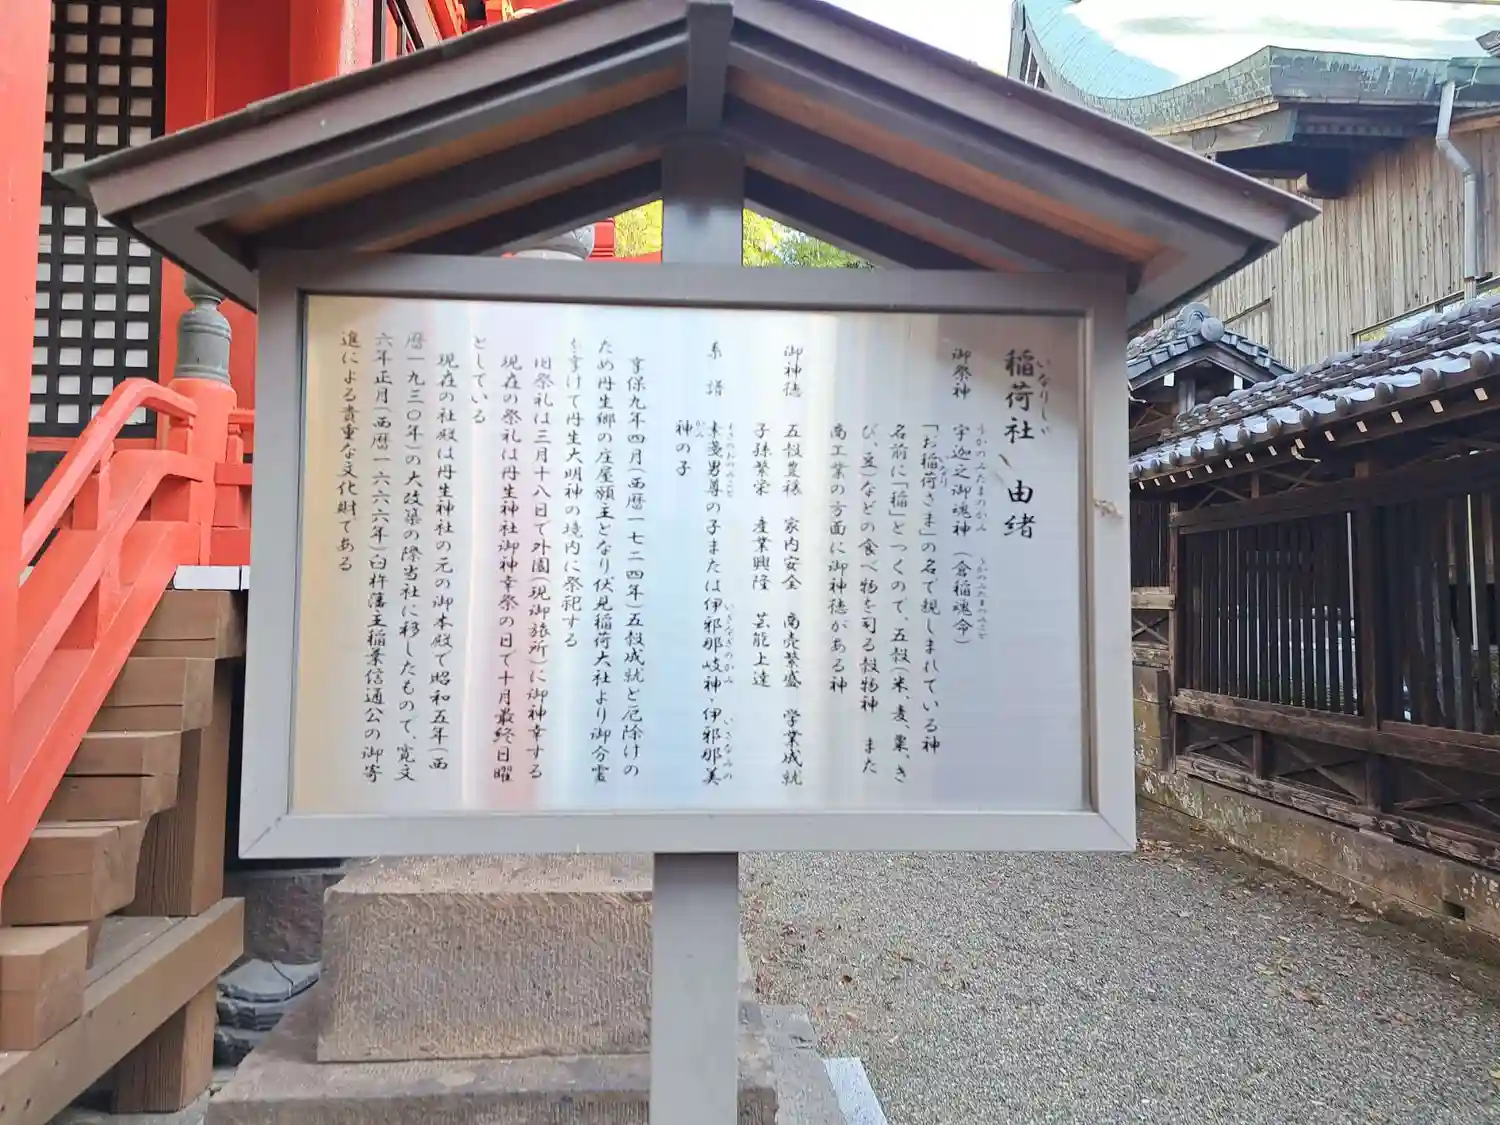 稲荷社、由緒
いなりしゃ
御祭神 宇迦之御魂神(倉稲魂命)
うかのみたまのかみ うかのみたまのみこと
「お稲荷さま」の名で親しまれている神
いなり
名前に「稲」とつくので、五穀(米、麦、粟、き
び、豆)などの食べ物を司る穀物神 また
商工業の方面に御神徳がある神
御神徳 五穀豊穣 家内安全 商売繁盛 学業成就
子孫繁栄 産業興隆 芸能上達
系譜 素戔男尊の子または伊邪那岐神、伊邪那美
すさのおのみこと いざなぎのかみ いざなみの
神の子
かみ
享保九年四月(西暦一七二四年)五穀成就と厄除けの
ため丹生郷の庄屋願主となり伏見稲荷大社より御分霊
を享けて丹生大明神の境内に祭祀する
旧祭礼は三月十八日で外園(現御旅所)に御神幸する
現在の祭礼は丹生神社御神幸祭の日で十月最終日曜
としている
現在の社殿は丹生神社の元の御本殿で昭和五年(西
暦一九三〇年)の大改築の際当社に移したもので、寛文
六年正月(西暦一六六六年)臼杵藩主稲葉信通公の御寄
進による貴重な文化財である